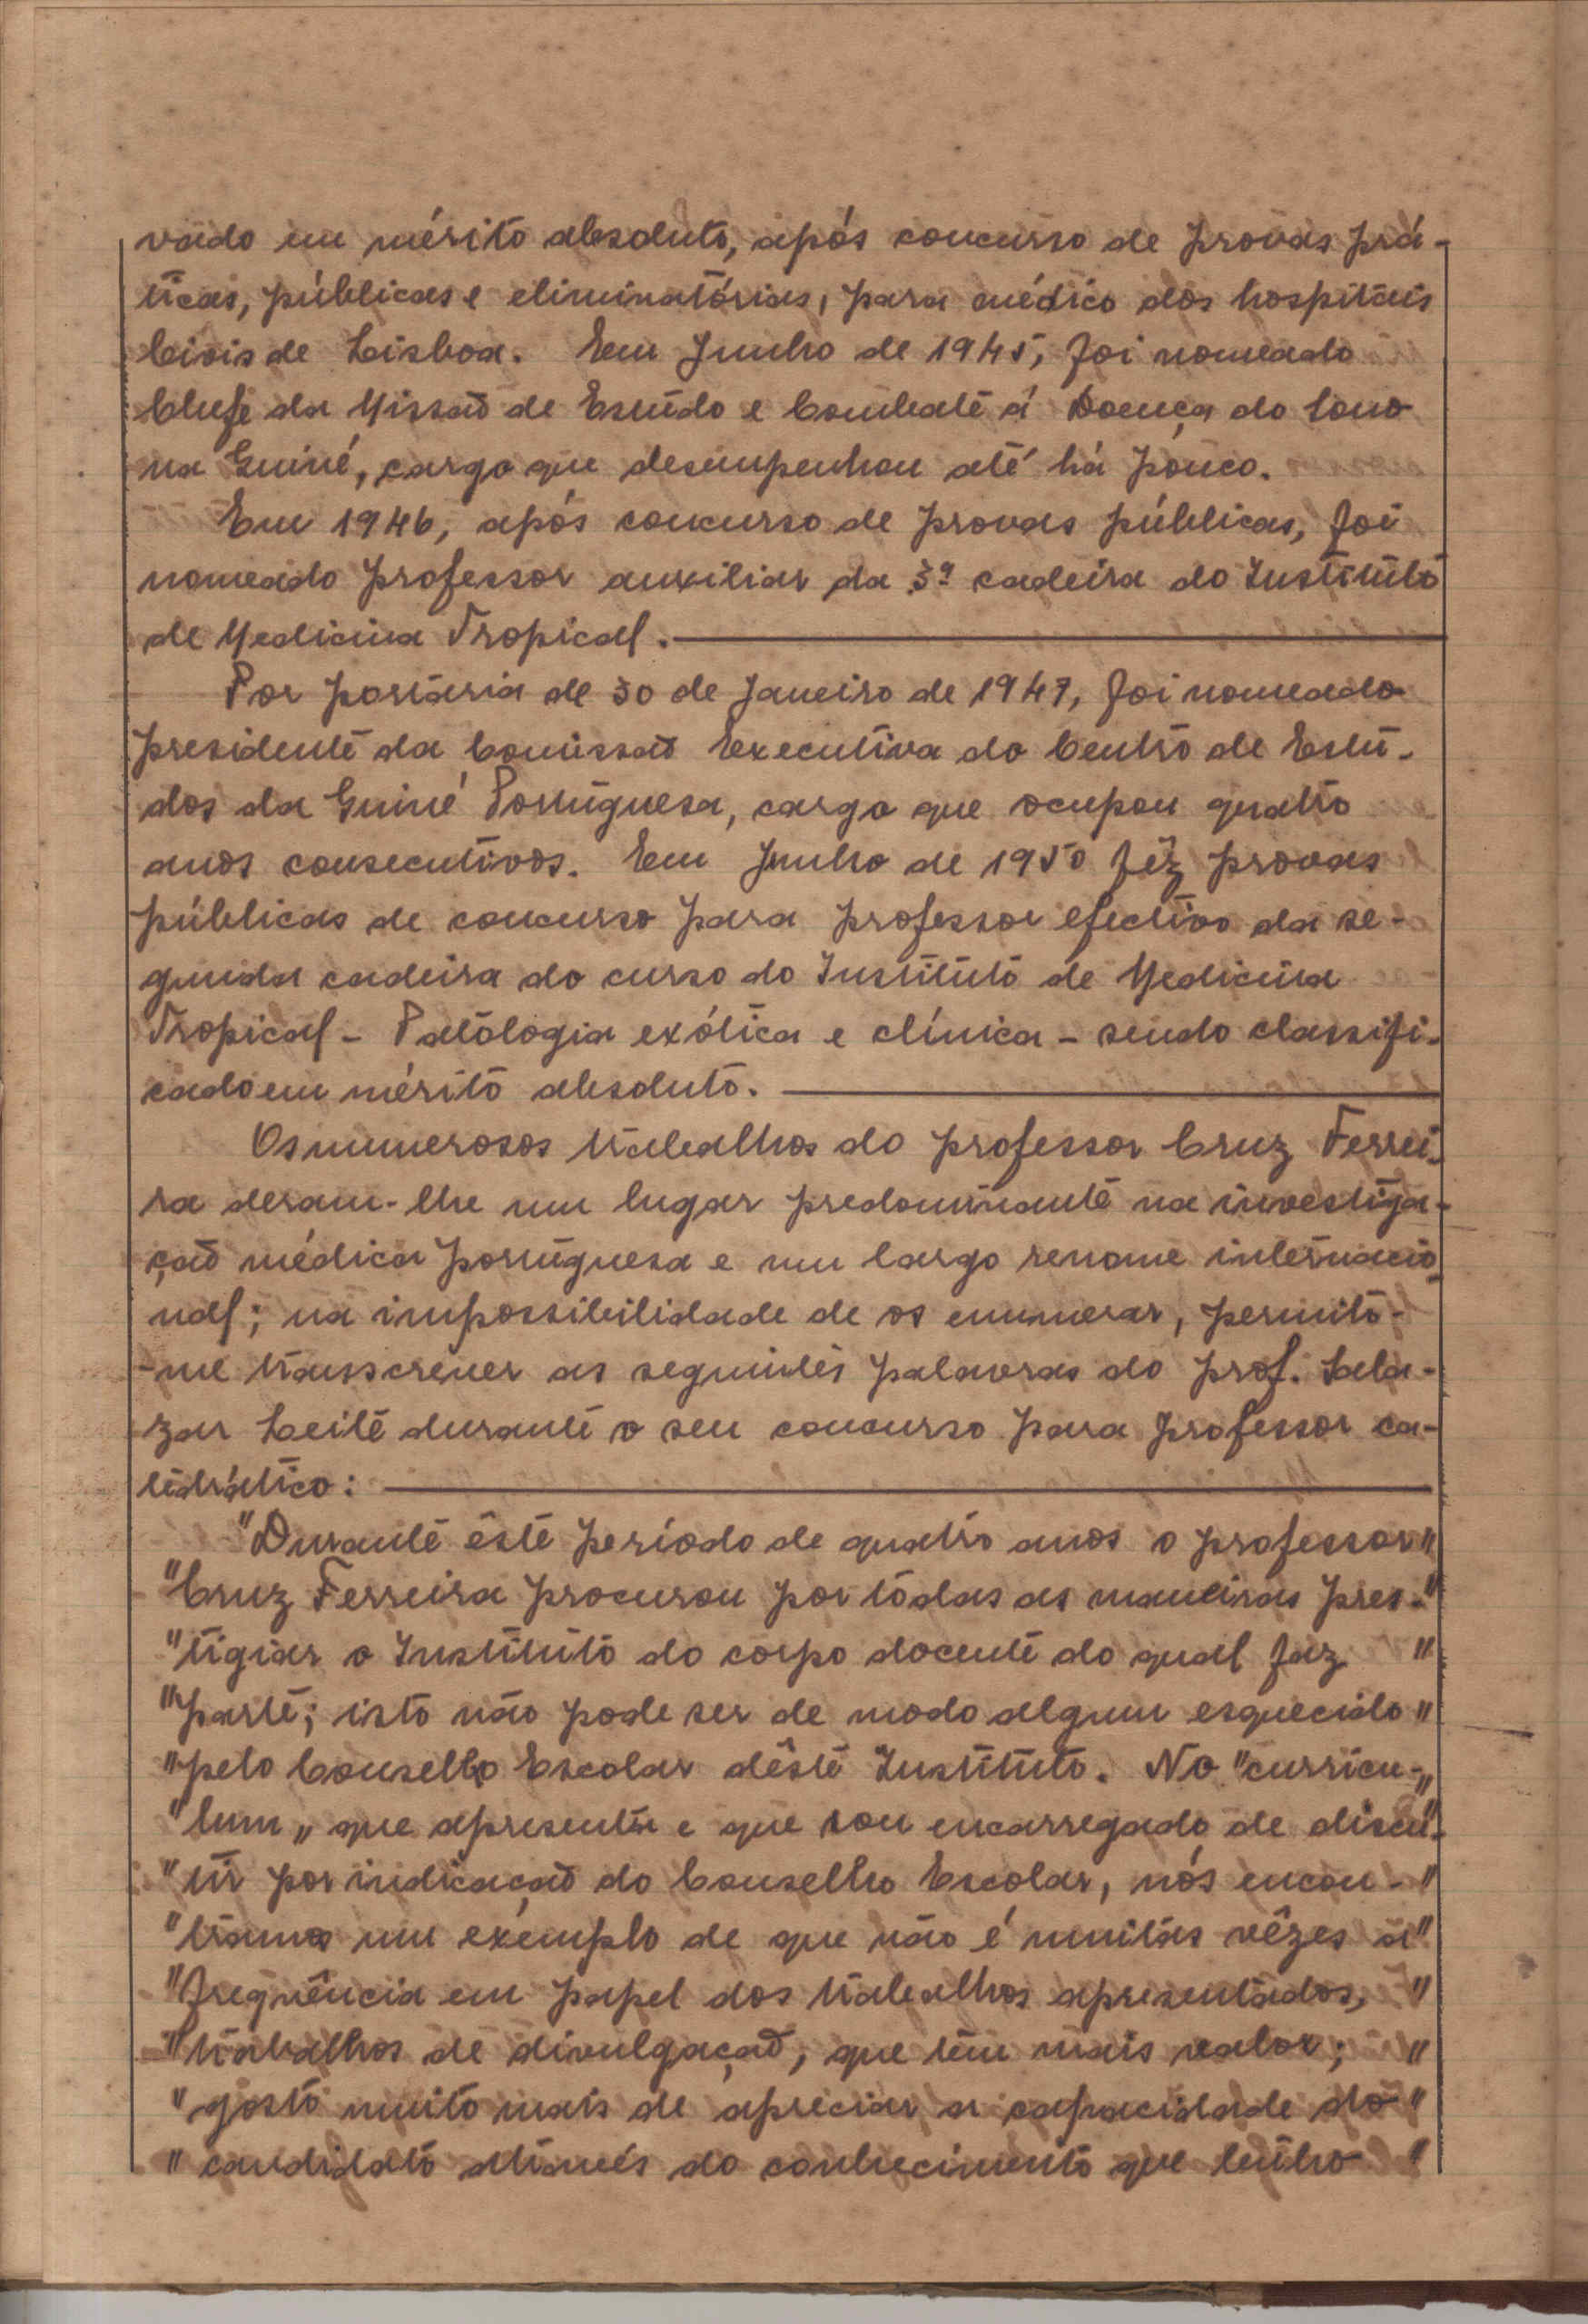 vado em mérito absoluto, após concurso de provas prá-
ticas, públicas e eliminatórias, para médico dos hospitais
Civis de Lisboa. Em Junho de 1945, foi nomeado
Chefe da Missão de Estudo e Combate á Doença do Sono
na Guiné, cargo que desempenhou até há pouco.
Em 1946, após concurso de provas públicas, foi
nomeado professor auxiliar da 3ª cadeira do Instituto
de Medicina Tropical.
Por portaria de 30 de Janeiro de 1947, foi nomeado
presidente da Comissão Executiva do Centro de Estu-
dos da Guiné Portuguesa, cargo que ocupou quatro
anos consecutivos. Em Junho de 1950 fêz provas
públicas de concurso para professor efectivo da se-
gunda cadeira do curso do Instituto de Medicina
Tropical - Patologia exótica e clínica - sendo classifi-
cado em mérito absoluto.
Os numerosos trabalhos do professor Cruz Ferrei-
ra deram-lhe um lugar predominante na investiga-
ção médica portuguesa e um largo renome internacio-
nal; na impossibilidade de os enumerar, permito-
-me transcrever as seguintes palavras do prof. Sala-
zar Leite durante o seu concurso para professor ca-
tedrático:
"Durante êste período de quatro anos o professor"
"Cruz Ferreira procurou por tôdas as maneiras pres-"
"tigiar o Instituto do corpo docente do qual faz "
"parte; isto não pode ser de modo algum esquecido"
"pelo Conselho Escolar dêste Instituto. No "curricu-"
"lum" que apresenta e que sou encarregado de discu-"
"tir por indicação do Conselho Escolar, nós encon-"
"tramos um exemplo de que não é muitas vêzes a"
"frequência em papel dos trabalhos apresentados, "
"trabalhos de divulgação, que têm mais valor; "
"gosto muito mais de apreciar a capacidade do"
"candidato através do conhecimento que tenho "